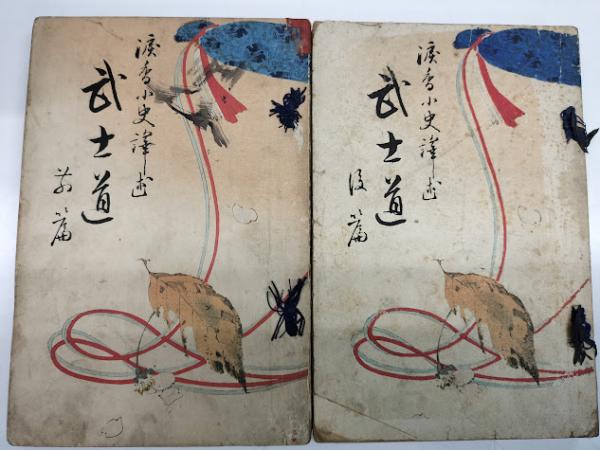 涙香小史譯述
武士道
前篇
涙香小史譯述
武士道
後篇